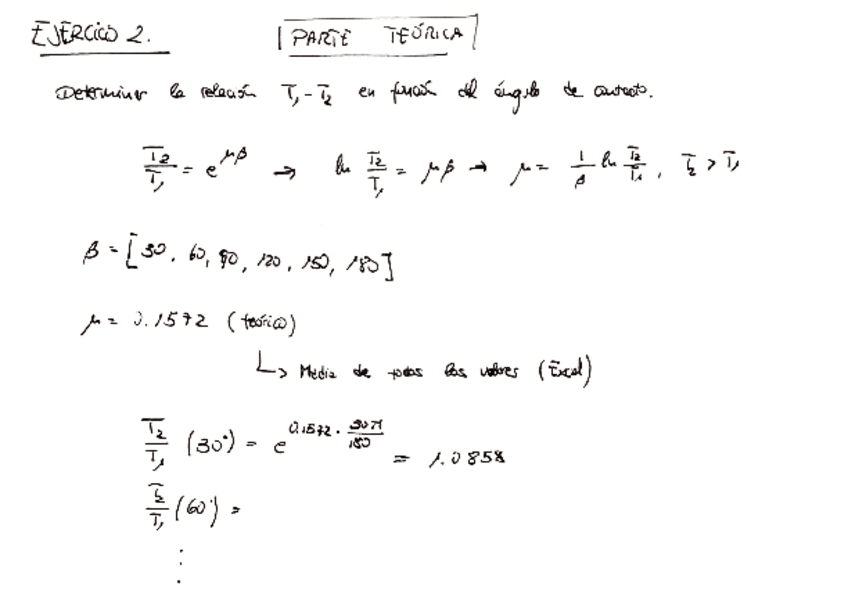 EJERCICIO 2.
PARTE TEÓRICA
Determinar la relación T₁ - T₂ en función del ángulo de contacto.
T₂/T₁ = e^(μβ) → ln T₂/T₁ = μβ → μ = 1/β ln T₂/T₁ , T₂ > T₁
β = [30, 60, 90, 120, 150, 180]
μ = 0.1572 (teórico)
↳ Media de todos los valores (Excel)
T₂/T₁ (30°) = e^(0.1572 · 30π/180) = 1.0858
T₂/T₁ (60°) =
⋮